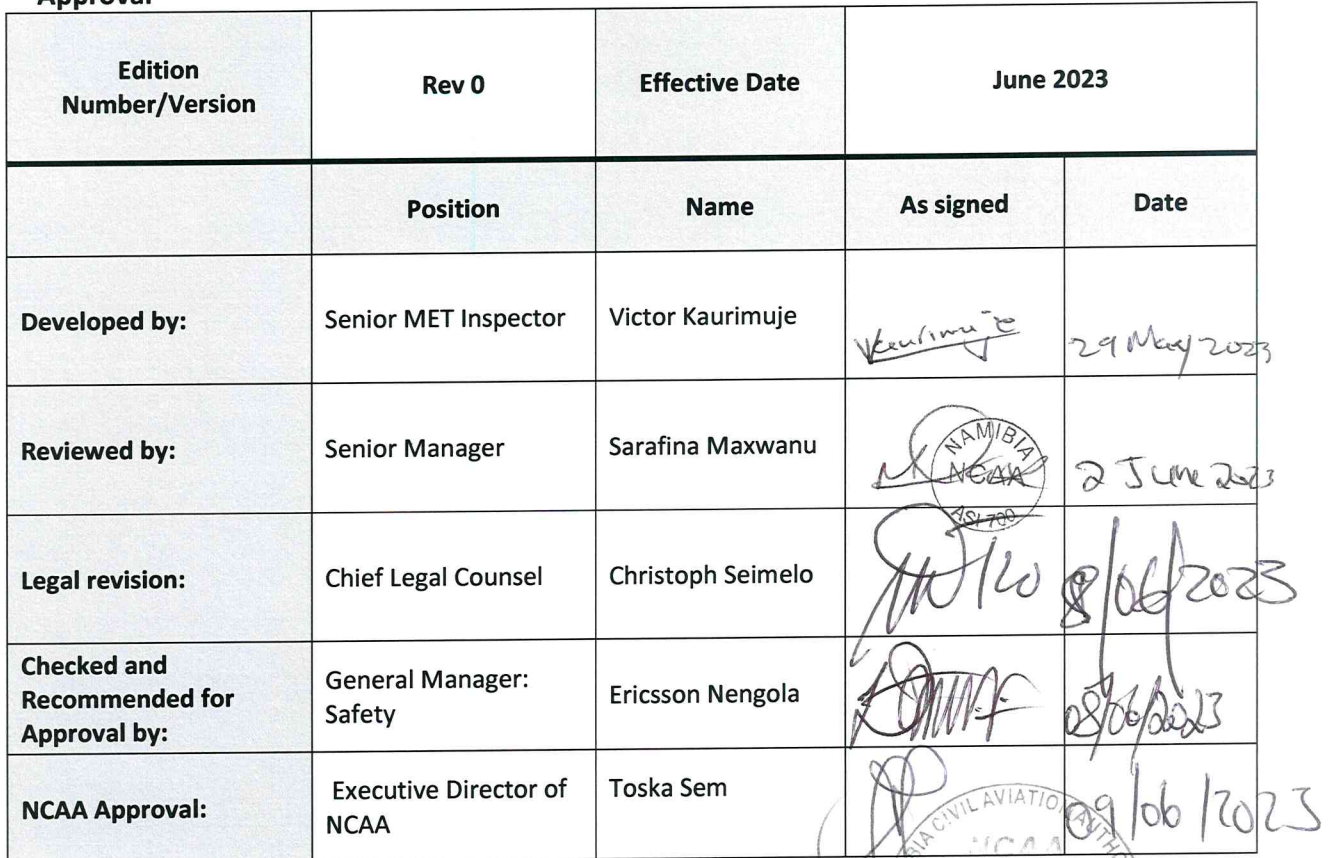 Approval
Edition
Number/Version
Rev 0
Effective Date
June 2023
Position
Name
As signed
Date
Developed by:
Senior MET Inspector
Victor Kaurimuje
VKaurimuje
29 May 2023
Reviewed by:
Senior Manager
Sarafina Maxwanu
NAMIBIA
NCAA
ASI 700
2 June 2023
Legal revision:
Chief Legal Counsel
Christoph Seimelo
8/06/2023
Checked and
Recommended for
Approval by:
General Manager:
Safety
Ericsson Nengola
08/06/2023
NCAA Approval:
Executive Director of
NCAA
Toska Sem
CIVIL AVIATION
NCAA
09/06/2023